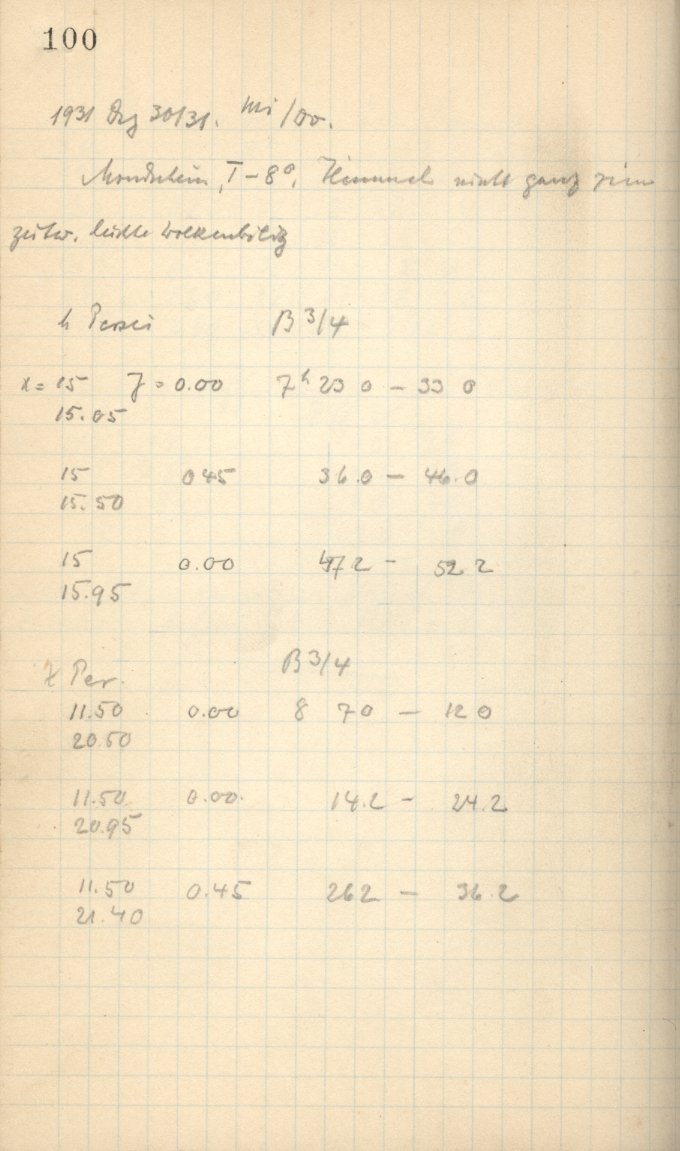 100
1931 Dez 30/31. Mi/Do.
Mondschein, T -8°, Himmel nicht ganz rein
zeitw. leichte
h Persei B 3/4
x = 15 y = 0.00 7h 23 0 - 33 0
15.05
15 0 45 36.0 - 46.0
15.50
15 0.00 47 2 - 52 2
15.95
χ Per. B 3/4
11.50 0.00 8 7 0 - 12 0
20.50
11.50 0.00. 14.2 - 24.2
20.95
11.50 0.45 26 2 - 36.2
21.40